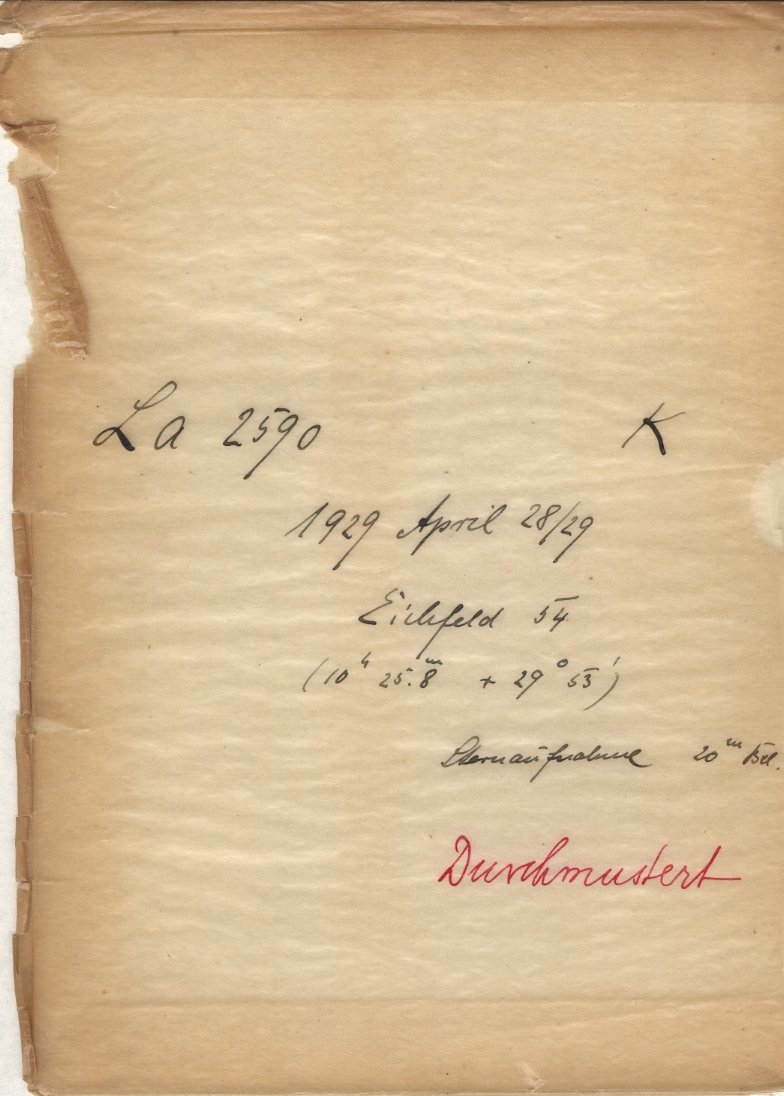 La 2590 K
1929 April 28/29
Eichfeld 54
(10ʰ 25.8ᵐ + 29° 53')
Sternaufnahme 20ᵐ Bel.
Durchmustert